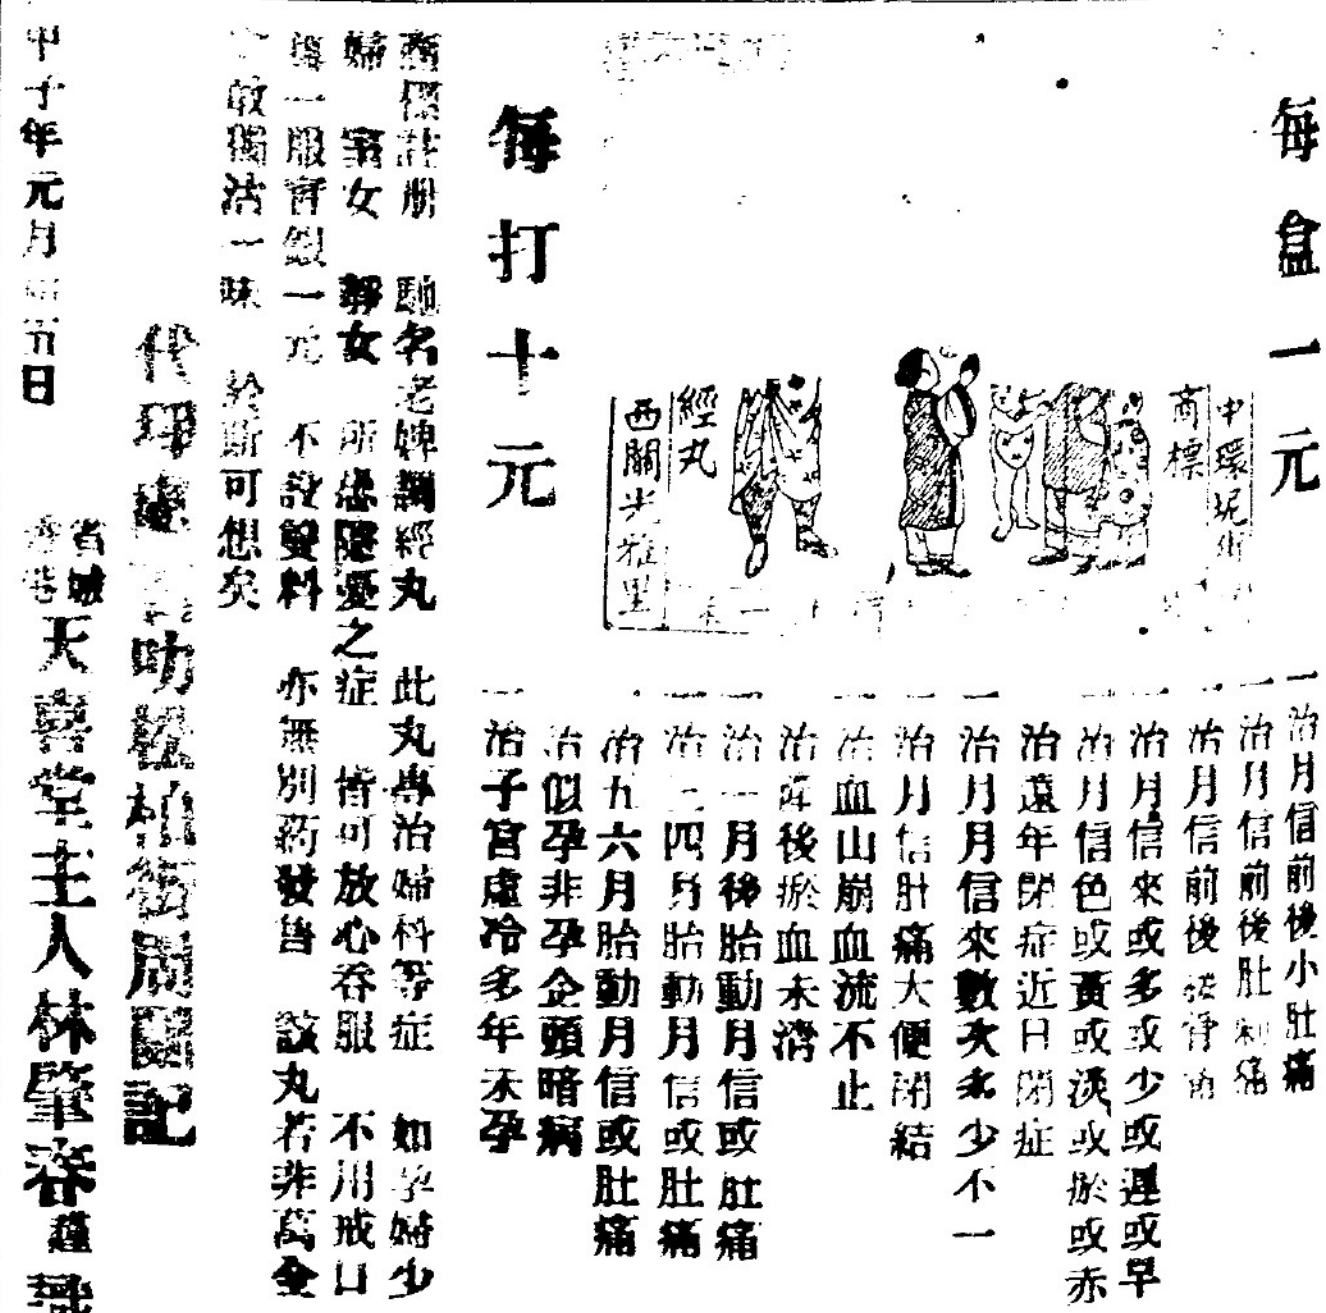 每盒一元
中環坭街
商標
經丸
西關光雅里
一治月信前後小肚痛
一治月信前後肚刺痛
治月信前後
一治月信來或多或少或遲或早
一治月信色或黃或淡或瘀或赤
治遠年閉症近日閉症
一治月月信來數次多少不一
一治月信肚痛大便閉結
一治血山崩血流不止
治產後瘀血未清
一治一月後胎動月信或肚痛
一治三四月胎動月信或肚痛
治五六月胎動月信或肚痛
治似孕非孕企頭暗病
一治子宮虛冷多年未孕
每打十元
商標註冊 馳名老婢調經丸 此丸專治婦科等症 如孕婦少
婦 室女 孀女 所患隱憂之症 皆可放心吞服 不用戒口
每一服官銀一元 不設雙料 亦無別葯發售 該丸若非萬全
敏獨沽一味 於斯可想矣
代理處 叻 街 記
省城
香港
天喜堂主人林肇春謹識
甲子年元月 五日